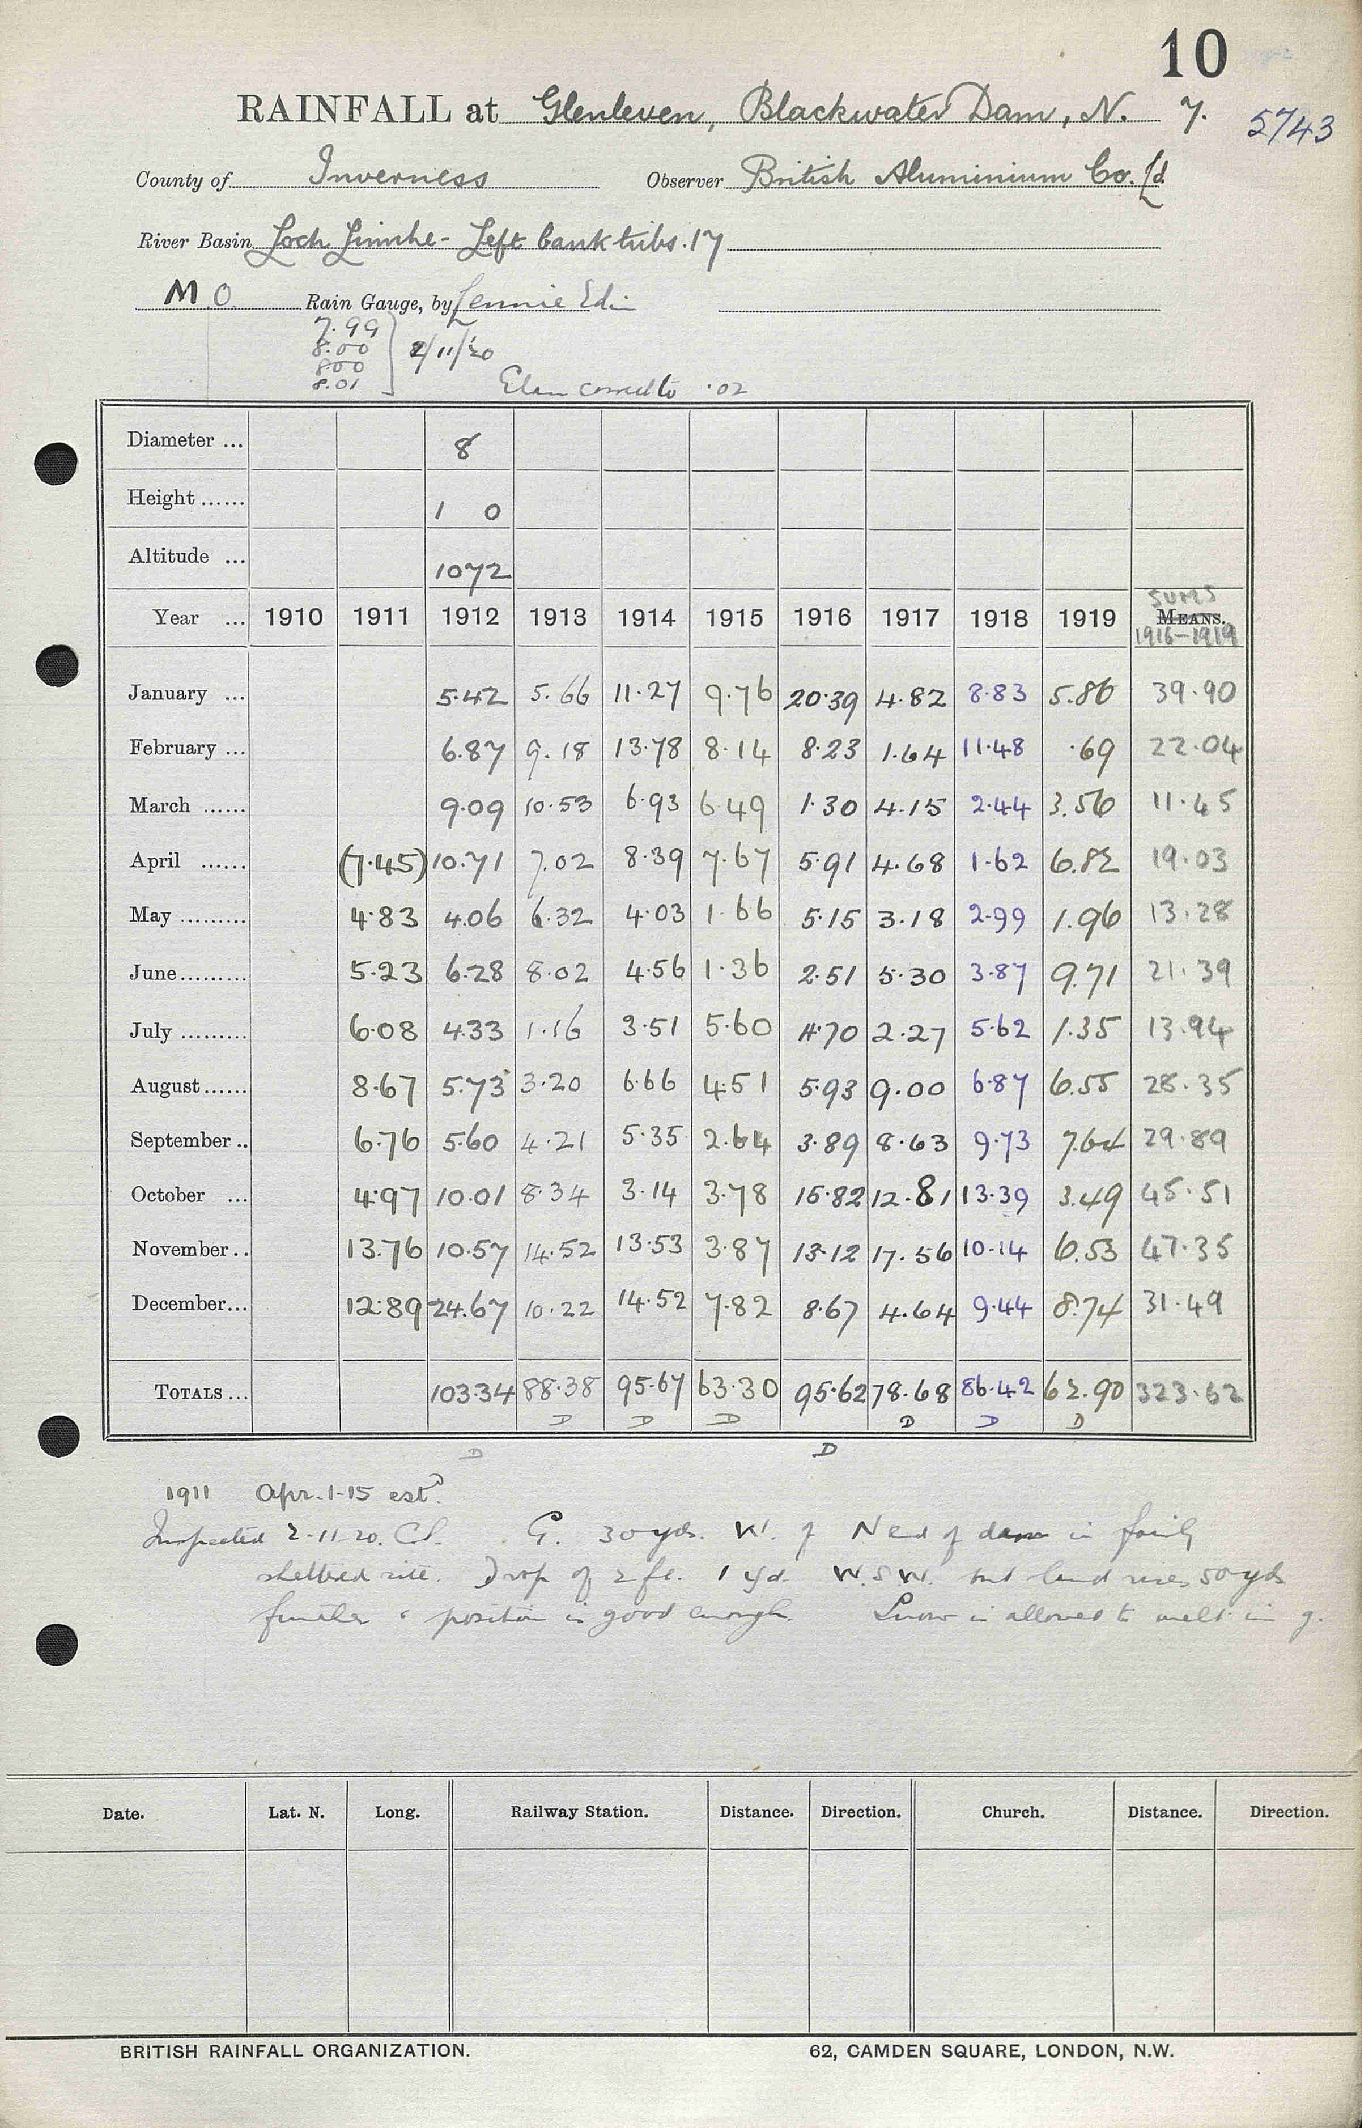 10
RAINFALL at Glenleven, Blackwater Dam, N. 7. 5743
County of Inverness Observer British Aluminium Co. Ld
River Basin Loch Linnhe - Left bank tribs. 17
M.O. Rain Gauge, by Lennie Edin
7.99
8.00
8.00
8.01
2/11/20
·02
Diameter ... 8
Height ...... 1 0
Altitude ... 1072
SUMS
Year ... 1910 1911 1912 1913 1914 1915 1916 1917 1918 1919 MEANS.
1916-1919
January ... 5.42 5.66 11.27 9.76 20.39 4.82 8.83 5.86 39.90
February ... 6.87 9.18 13.78 8.14 8.23 1.64 11.48 .69 22.04
March ...... 9.09 10.53 6.93 6.49 1.30 4.15 2.44 3.56 11.45
April ...... (7.45) 10.71 7.02 8.39 7.67 5.91 4.68 1.62 6.82 19.03
May ......... 4.83 4.06 6.32 4.03 1.66 5.15 3.18 2.99 1.96 13.28
June ......... 5.23 6.28 8.02 4.56 1.36 2.51 5.30 3.87 9.71 21.39
July ......... 6.08 4.33 1.16 3.51 5.60 4.70 2.27 5.62 1.35 13.94
August ...... 8.67 5.73 3.20 6.66 4.51 5.93 9.00 6.87 6.55 28.35
September .. 6.76 5.60 4.21 5.35 2.64 3.89 8.63 9.73 7.64 29.89
October ... 4.97 10.01 8.34 3.14 3.78 15.82 12.81 13.39 3.49 45.51
November .. 13.76 10.57 14.52 13.53 3.87 13.12 17.56 10.14 6.53 47.35
December ... 12.89 24.67 10.22 14.52 7.82 8.67 4.64 9.44 8.74 31.49
TOTALS ... 103.34 88.38 95.67 63.30 95.62 78.68 86.42 62.90 323.62
D D D D D D
D D
1911 Apr. 1-15 estd.
Inspected 2-11-20. G. 30 yds. W. of N end of dam in fairly
sheltered site. Drop of 2 ft. 1 yd. W.S.W. but land rises 50 yds
further & position is good enough. Snow is allowed to melt in g.
Date. Lat. N. Long. Railway Station. Distance. Direction. Church. Distance. Direction.
BRITISH RAINFALL ORGANIZATION. 62, CAMDEN SQUARE, LONDON, N.W.